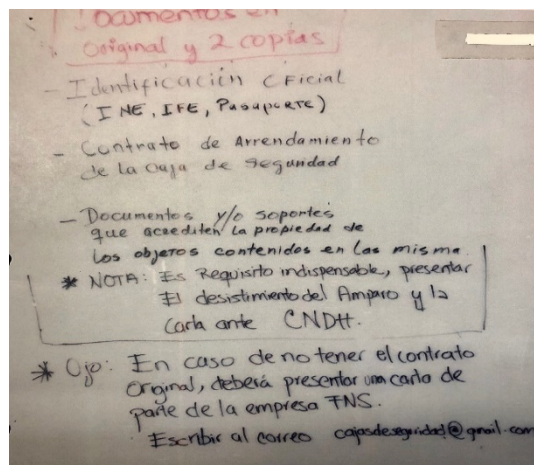 Documentos en
Original y 2 copias
- Identificación Oficial
(INE, IFE, Pasaporte)
- Contrato de Arrendamiento
de la Caja de Seguridad
- Documentos y/o soportes
que acrediten la propiedad de
los objetos contenidos en las misma.
* NOTA: Es Requisito indispensable, presentar
El desistimiento del Amparo y la
Carta ante CNDH.
* Ojo: En caso de no tener el contrato
Original, deberá presentar una carta de
parte de la empresa FNS.
Escribir al correo cajasdeseguridad@gmail.com